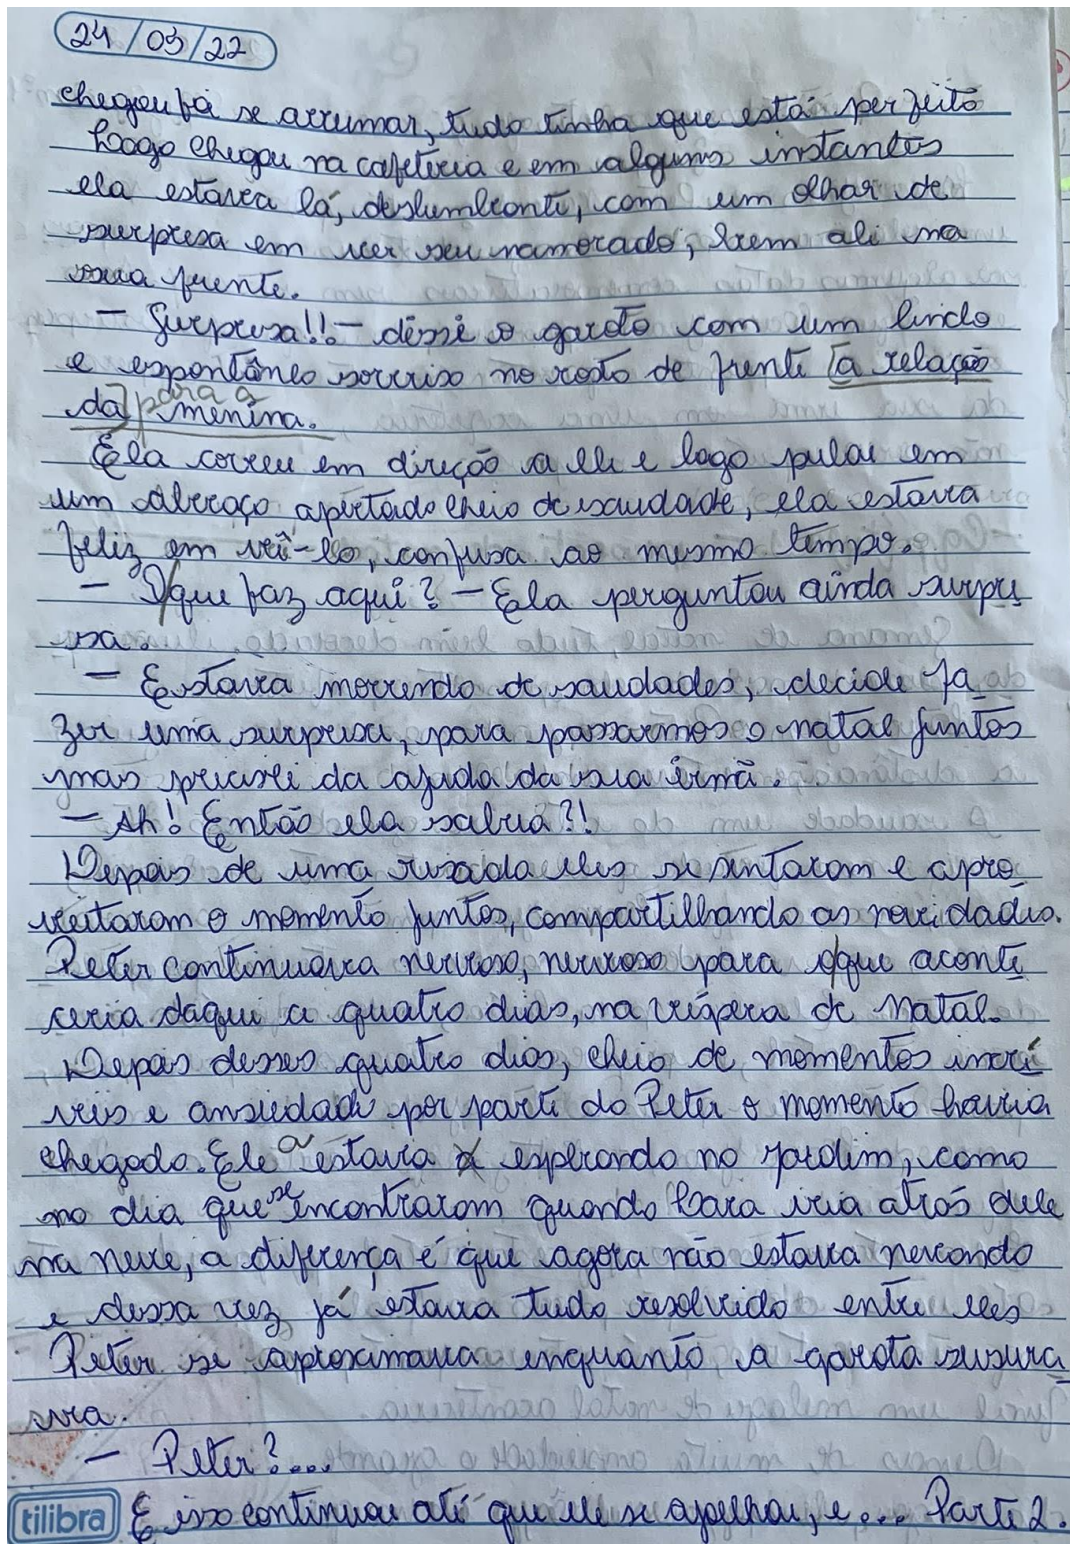 24/03/22
chegou já se arrumar, tudo tinha que está perfeito
Logo chegou na cafeteria e em alguns instantes
ela estava lá, deslumbrante, com um olhar de
surpresa em ver seu namorado, bem ali na
sua frente.
— Surpresa!! — disse o garoto com um lindo
e espontâneo sorriso no rosto de frente [a relação
da] para a menina.
Ela correu em direção a ele e logo pulou em
um abraço apertado cheio de saudade, ela estava
feliz em vê-lo, confusa ao mesmo tempo.
— O/que faz aqui? — Ela perguntou ainda surpre
sa.
— Estava morrendo de saudades, decide fa
zer uma surpresa, para passarmos o natal juntos
mas precisei da ajuda da sua irmã.
— Ah! Então ela sabia?!
Depois de uma risada eles se sentaram e apro
veitaram o momento juntos, compartilhando as novidades.
Peter continuava nervoso, nervoso para o/que aconte
ceria daqui a quatro dias, na véspera de Natal.
Depois desses quatro dias, cheio de momentos incrí
veis e ansiedade por parte do Peter o momento havia
chegado. Ele a estava esperando no jardim, como
no dia que se encontraram quando Lara iria atrás dele
na neve, a diferença é que agora não estava nevando
e dessa vez já estava tudo resolvido entre eles
Peter se aproximava enquanto a garota susura
va.
— Peter?...
E isso continuou até que ele se ajoelhou, e... Parte 2.
tilibra